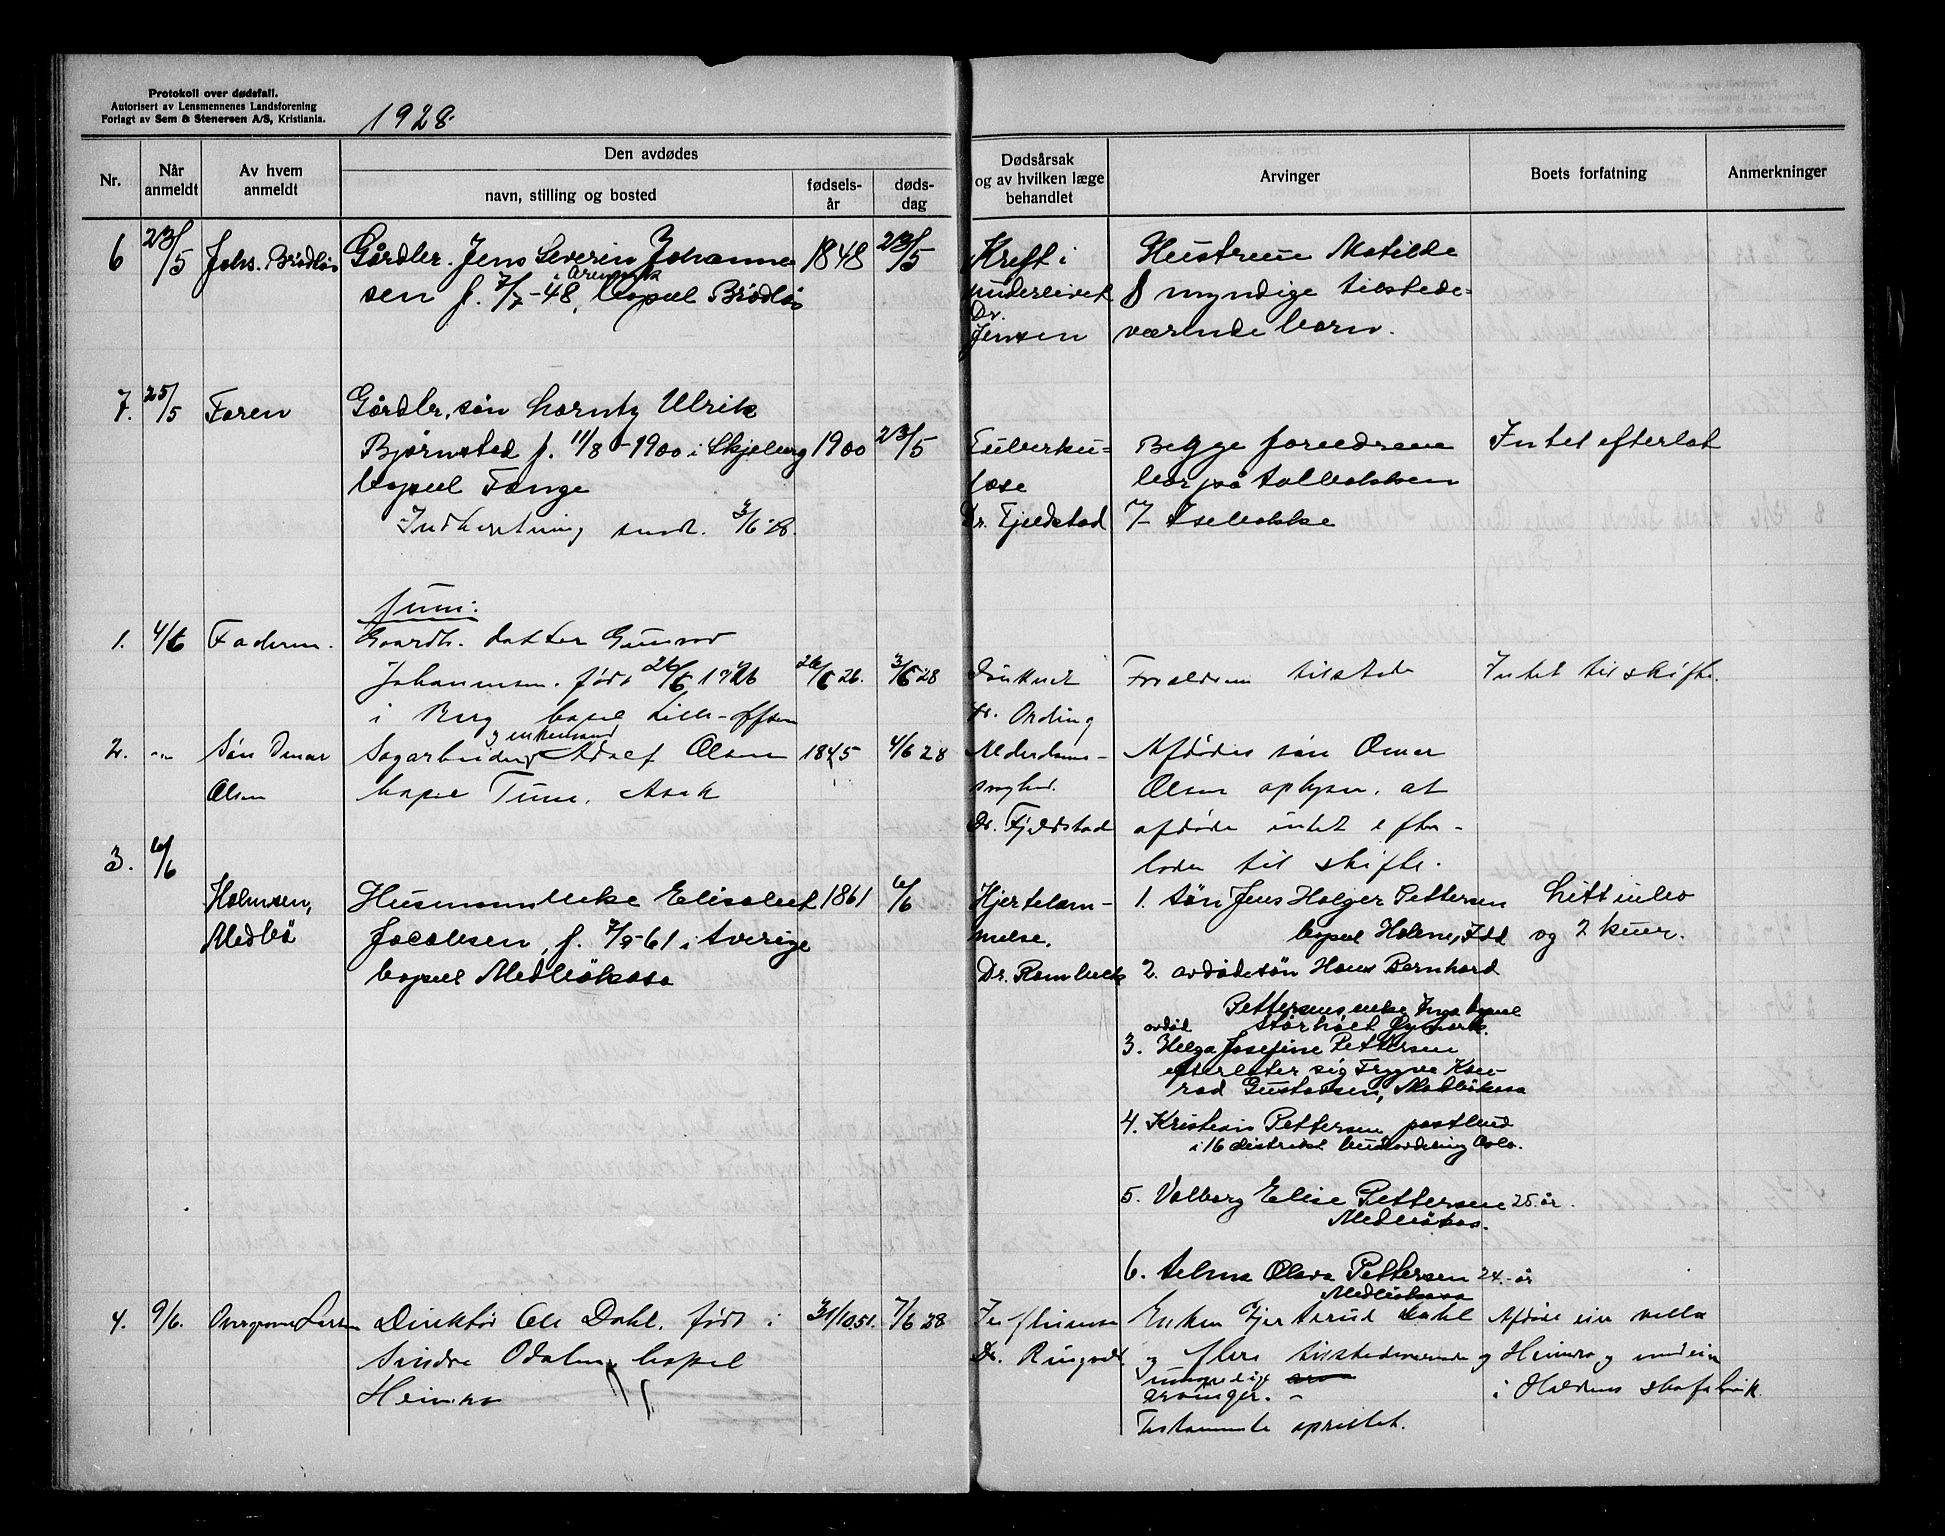 Protokoll over dødsfall.
Autorisert av Lensmennenes Landsforening
Forlagt av Sem & Stenersen A/S, Kristiania.
1928.
Nr.
Når anmeldt
Av hvem anmeldt
Den avdødes
navn, stilling og bosted
fødsels-år
døds-dag
Dødsårsak og av hvilken læge behandlet
Arvinger
Boets forfatning
Anmerkninger
6 23/5 Johs. Brødløs
Gårdbr. Jens Severin Johannes
i Aremark
sen f. 7/7-48, bopæl Brødløs
1848 23/5
Kreft i
underlivet
Dr.
Jensen
Hustrue Matilde
8 myndige tilstede-
værende barn.
7. 25/5 Faren
Gårdbr. søn Lorntz Ulrik
Bjørnstad f. 11/8-1900 i Skjeberg
bopæl Tange
Indberetning sendt. 3/6 28.
1900 23/5
Tuberku-
lose
Dr. Fjeldstad
Begge foreldrene
bor på Solbakken
7 Isebakke
Intet efterlat
Juni:
1. 4/6 Faderen.
Gaardb. datter Gunvor
Johannesen. født 26/6 1926
i Berg bopæl Lille-
26/6 26. 3/6 28
Dr. Ording
Foreldrene tilstede
Intet til skifte.
2. -"- Søn Omar
Olsen
og enkemand
Sagarbeider Adolf Olsen
bopæl Tune, Asak
1845 4/6 28
Alderdoms-
svaghed.
Dr. Fjeldstad
Afdødes søn Omar
Olsen oplyser, at
afdøde intet efter-
lader til skifte.
3. 6/6
Holmsen,
Medbø
Husmannsenke Elisabet
Jacobsen, f. 7/9-61 i Sverige
bopæl Medbøkasa
1861 6/6
Hjertelam-
melse.
Dr. Rombeck
1. Søn Jens Holger Pettersen
bopæl Holm, Idd
2. avdøde søn Hans Bernhard
Pettersens enke Inga bopæl
avdød
3. Helga Josefine Pettersen
efterlater sig Trygve Kon-
rad Gustavsen, Medbøkasa
4. Kristian Pettersen postbud
i 16 distrikt budordning Oslo.
5. Valborg Elise Pettersen 25 år.
Medbøkas.
6. Selma Olava Pettersen 24 år
Medbøkasa
Litt inbo
og 2 kuer.
4. 9/6. Larsen
Direktør Ole Dahl, født i
Søndre Odalen, bopæl
Heimro
31/10 51. 7/6 28
Influensa
Dr. Ringvold
Enken Gjertrud Dahl
og flere tilstedeværende og
myndige
arvinger. -
Testamente oprettet.
Afdøde eier villa
Heimro og medeier
i Haldens skofabrik.